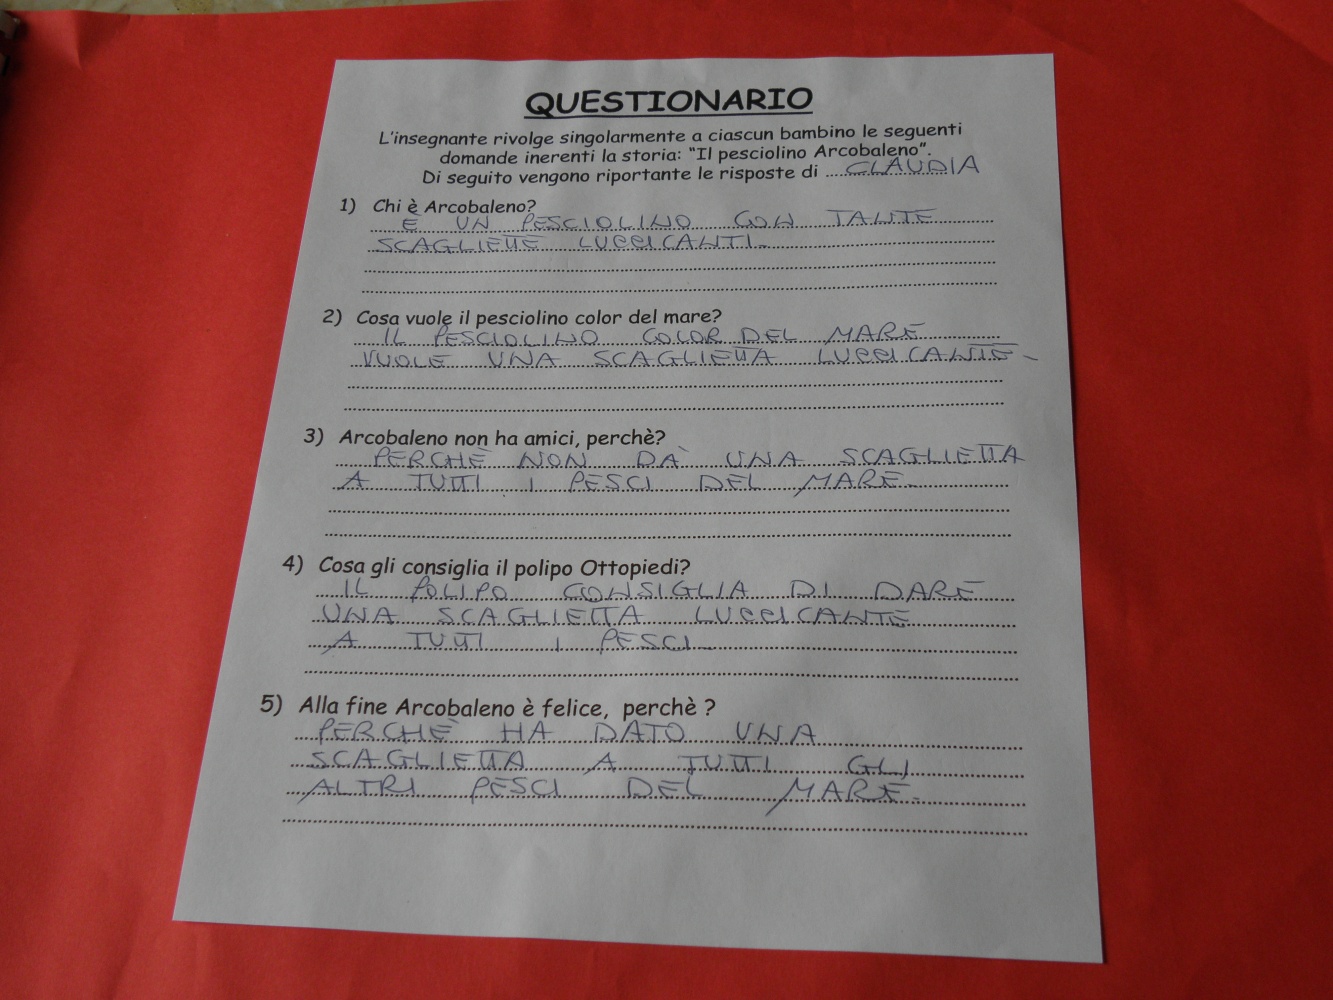 QUESTIONARIO
L'insegnante rivolge singolarmente a ciascun bambino le seguenti
domande inerenti la storia: "Il pesciolino Arcobaleno".
Di seguito vengono riportante le risposte di CLAUDIA
1) Chi è Arcobaleno?
È UN PESCIOLINO CON TANTE
SCAGLIETTE LUCCICANTI.
2) Cosa vuole il pesciolino color del mare?
IL PESCIOLINO COLOR DEL MARE
VUOLE UNA SCAGLIETTA LUCCICANTE.
3) Arcobaleno non ha amici, perchè?
PERCHÈ NON DA' UNA SCAGLIETTA
A TUTTI I PESCI DEL MARE.
4) Cosa gli consiglia il polipo Ottopiedi?
IL POLIPO CONSIGLIA DI DARE
UNA SCAGLIETTA LUCCICANTE
A TUTTI I PESCI.
5) Alla fine Arcobaleno è felice, perchè ?
PERCHÈ HA DATO UNA
SCAGLIETTA A TUTTI GLI
ALTRI PESCI DEL MARE.